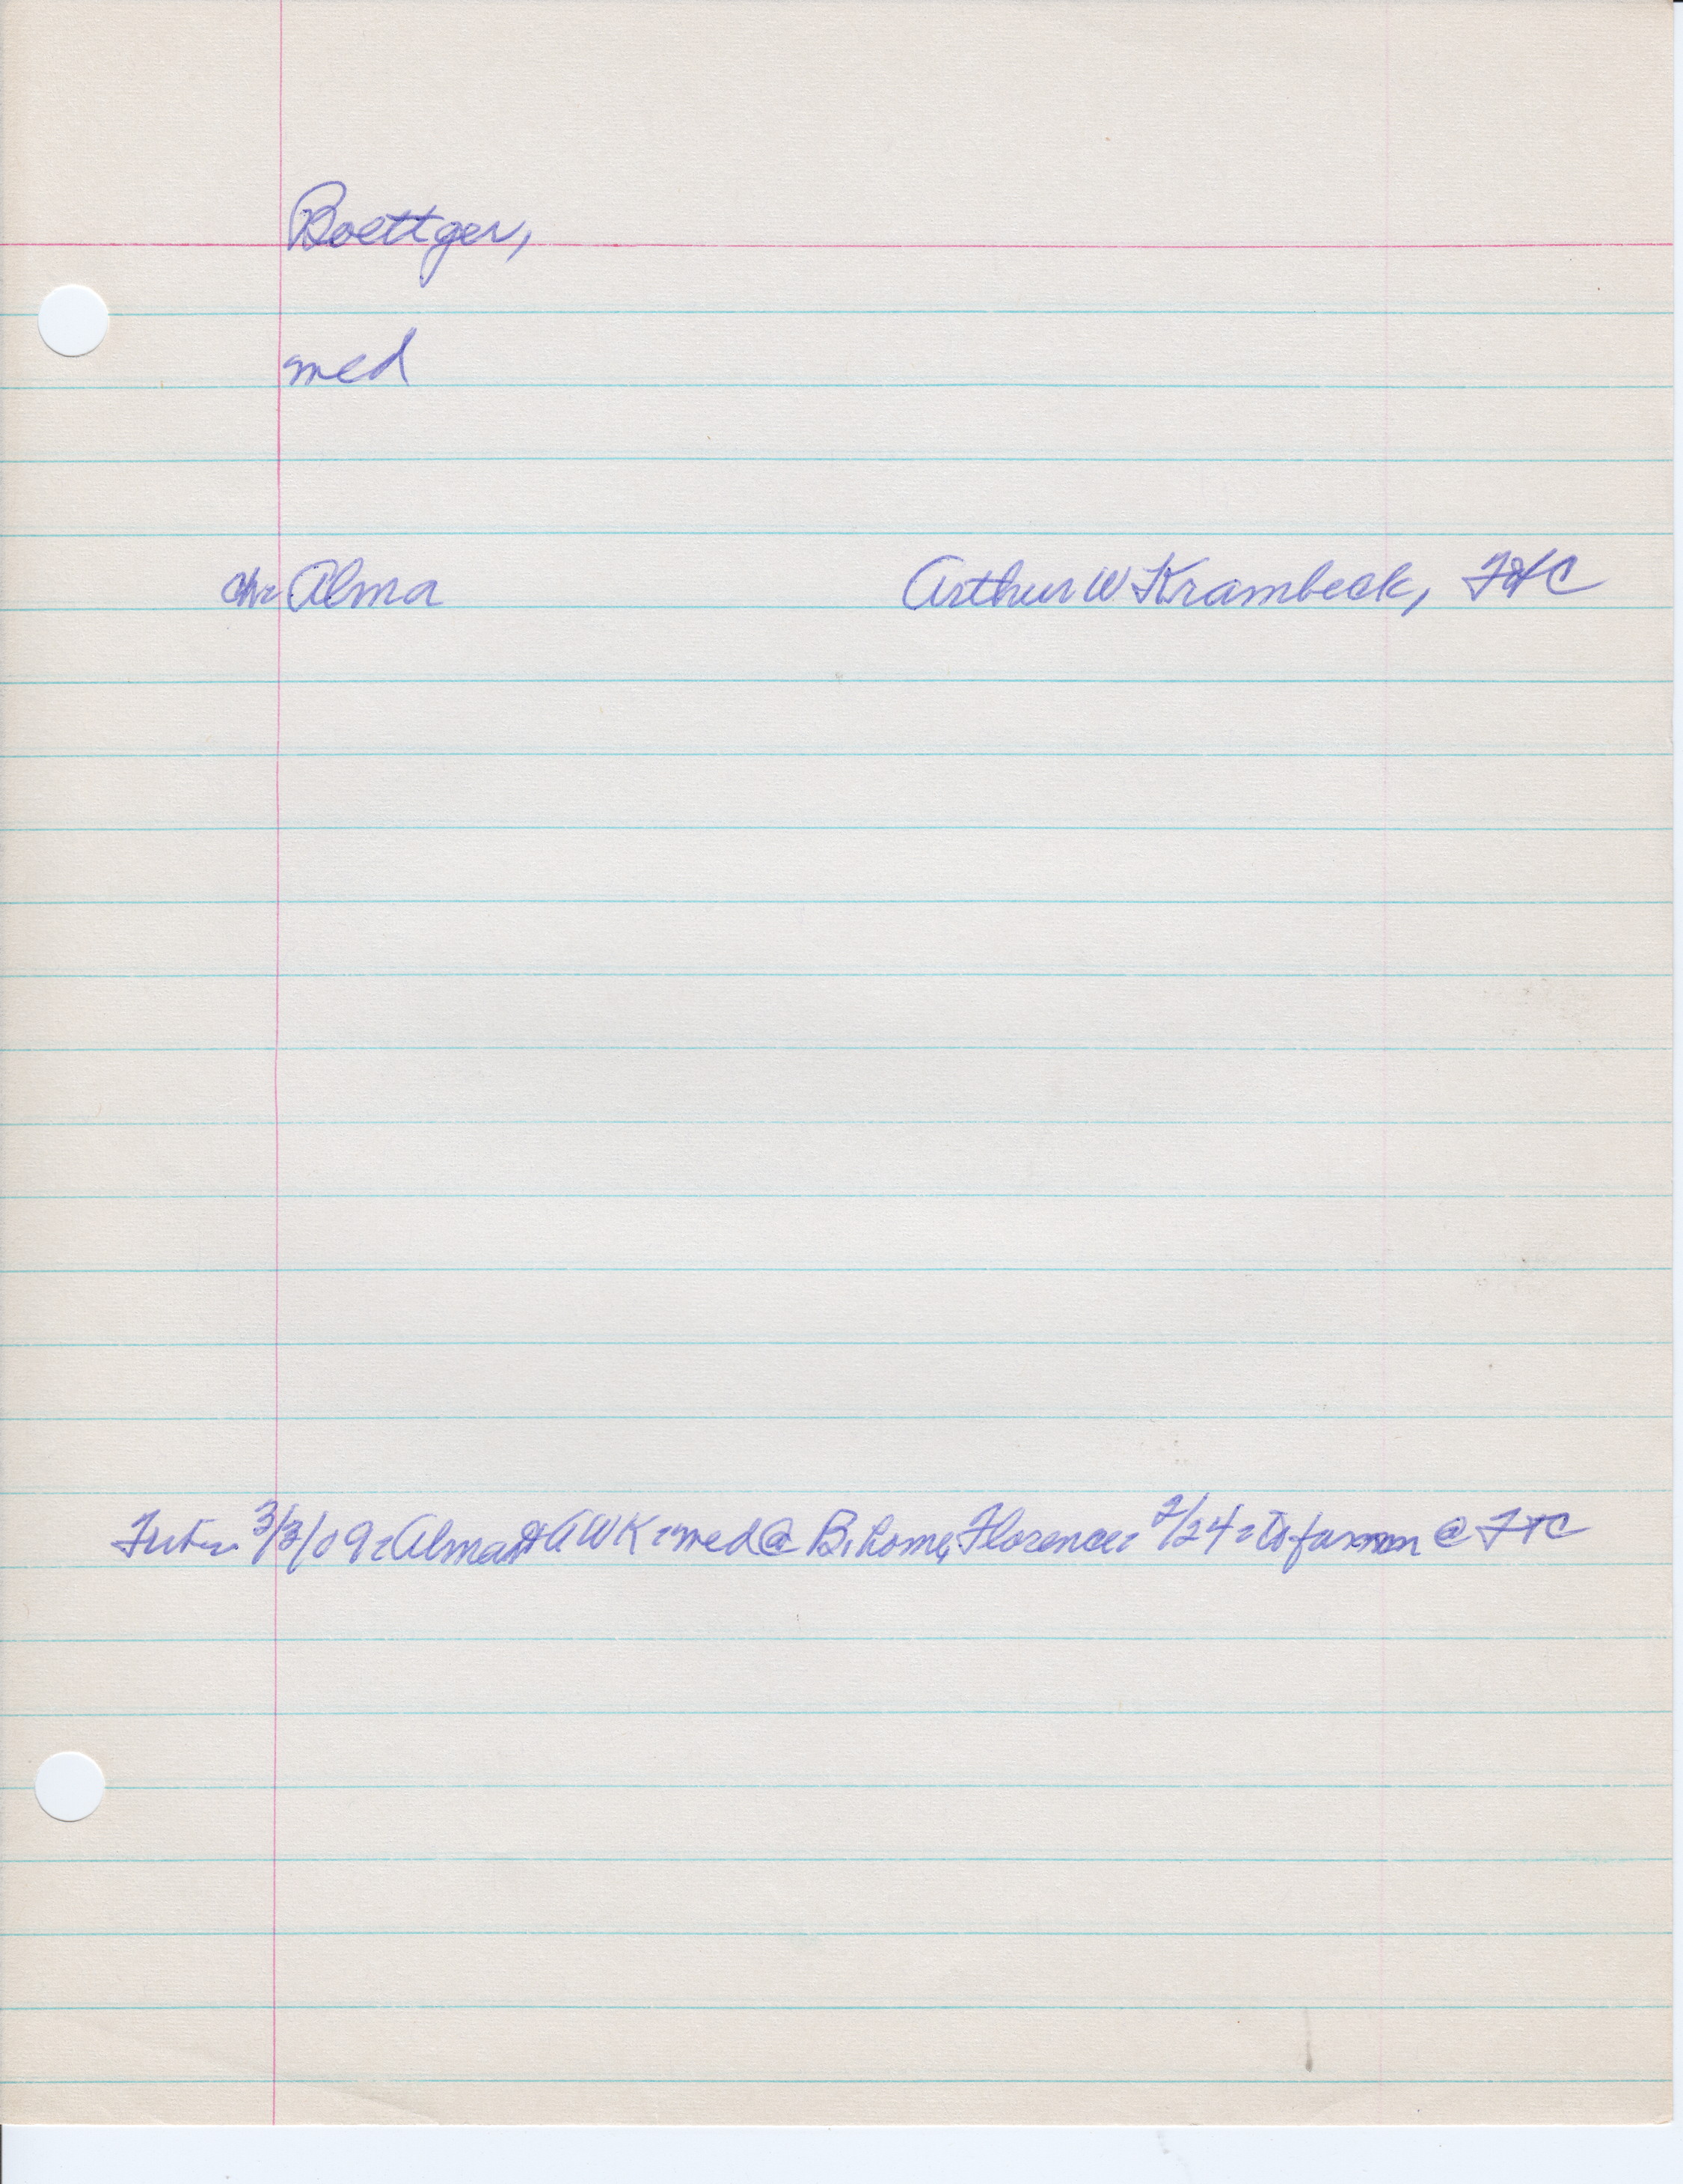 Boettger,
med
ch: Alma Arthur W Krambeck, FtC
3/3/09: Alma & AWK: med @ B. home, Florence: 2/24: to farm @ FtC